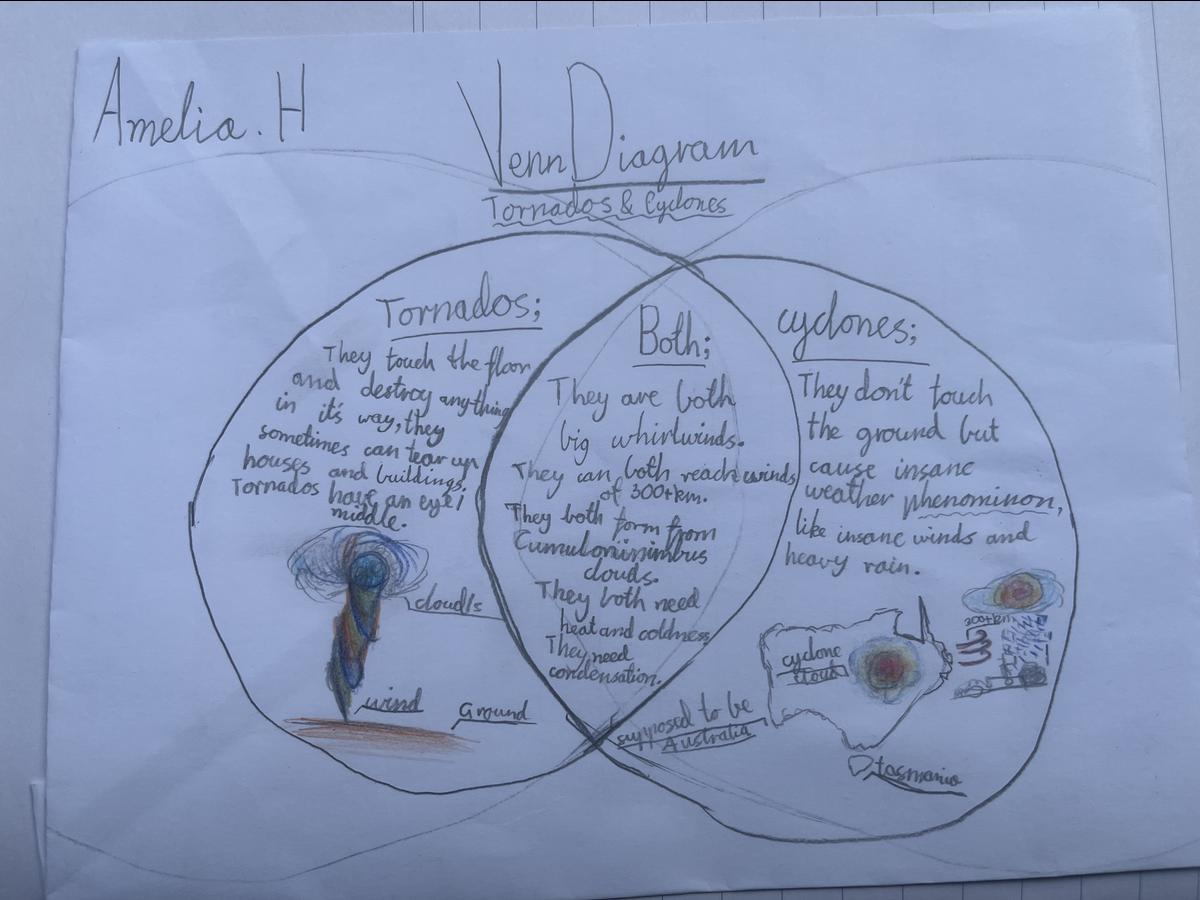 Amelia. H
Venn Diagram
Tornados & Cyclones
Tornados;
They touch the floor
and destroy anything
in it's way, they
sometimes can tear up
houses and buildings,
Tornados have an eye i
middle.
clouds
wind
Ground
Both;
They are both
big whirlwinds.
They can both reach winds
of 300+km.
They both form from
Cumulonimimbus
clouds.
They both need
heat and coldness
They need
condensation.
cyclones;
They don't touch
the ground but
cause insane
weather phenominon,
like insane winds and
heavy rain.
300+km
cyclone
cloud
supposed to be
Australia
tasmania